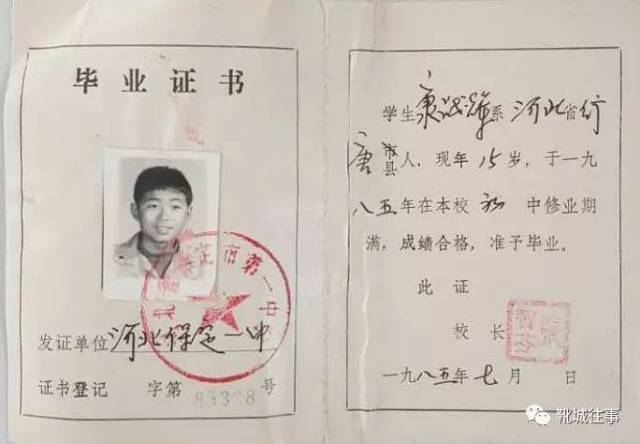 毕业证书
河北保定市第一中
发证单位河北保定一中
证书登记 字第 号
学生康 系河北省行
唐市县人，现年15岁，于一九
八五年在本校初中修业期
满，成绩合格，准予毕业。
此证
校长
一九八五年七月 日
靴城往事